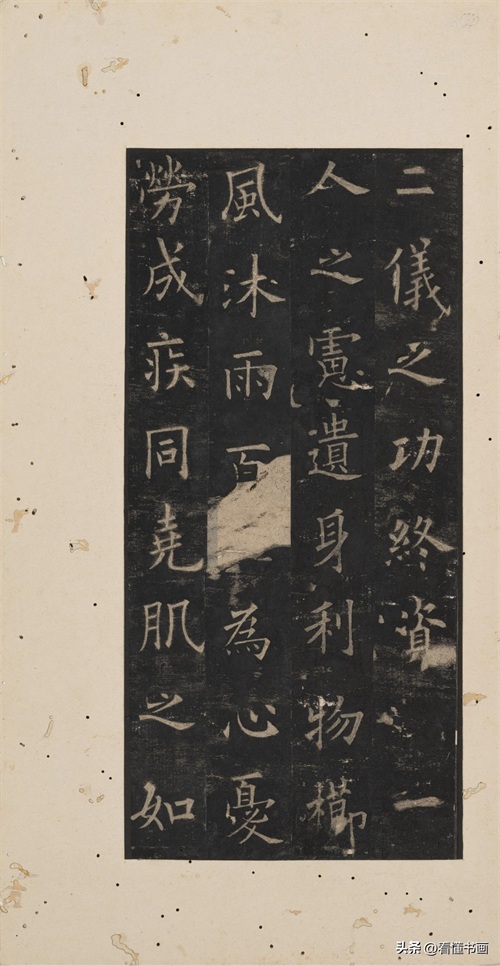 二儀之功終資一
人之慮遺身利物櫛
風沐雨百為心憂
勞成疾同堯肌之如
头条 @看懂书画